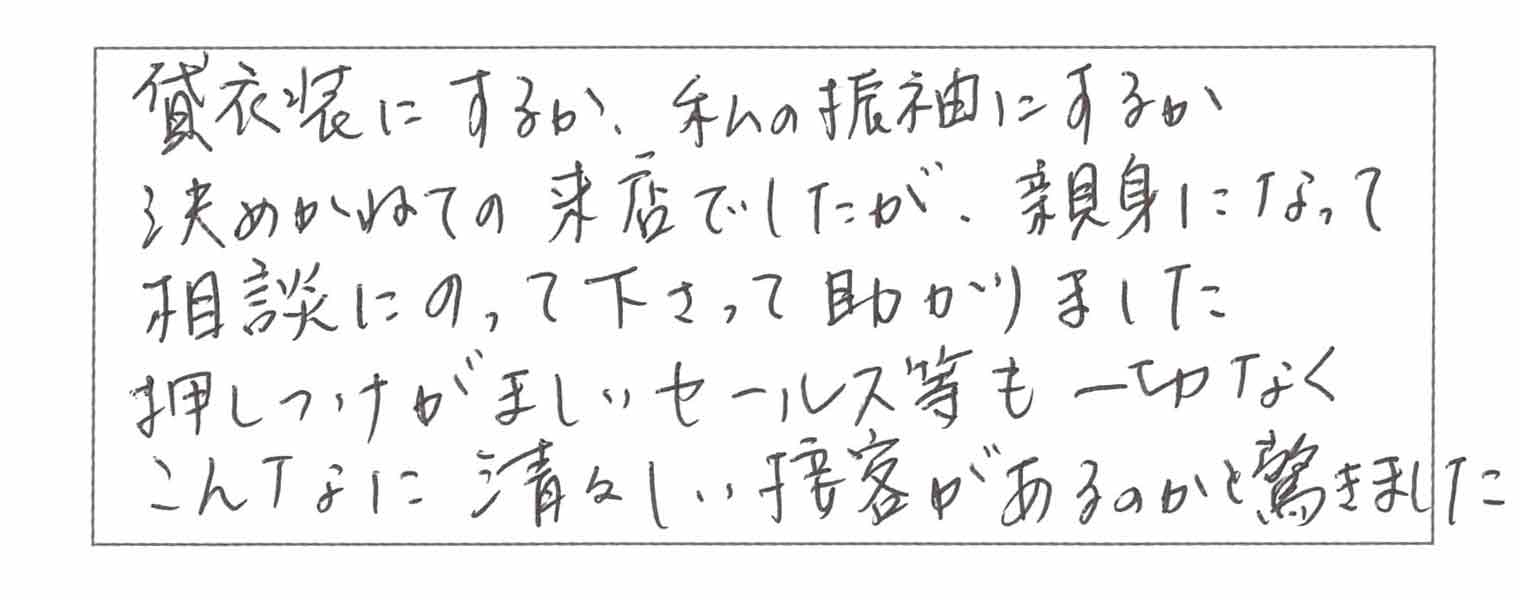 貸衣装にするか、私の振袖にするか
決めかねての来店でしたが、親身になって
相談にのって下さって助かりました
押しつけがましいセールス等も一切なく
こんなに清々しい接客があるのかと驚きました